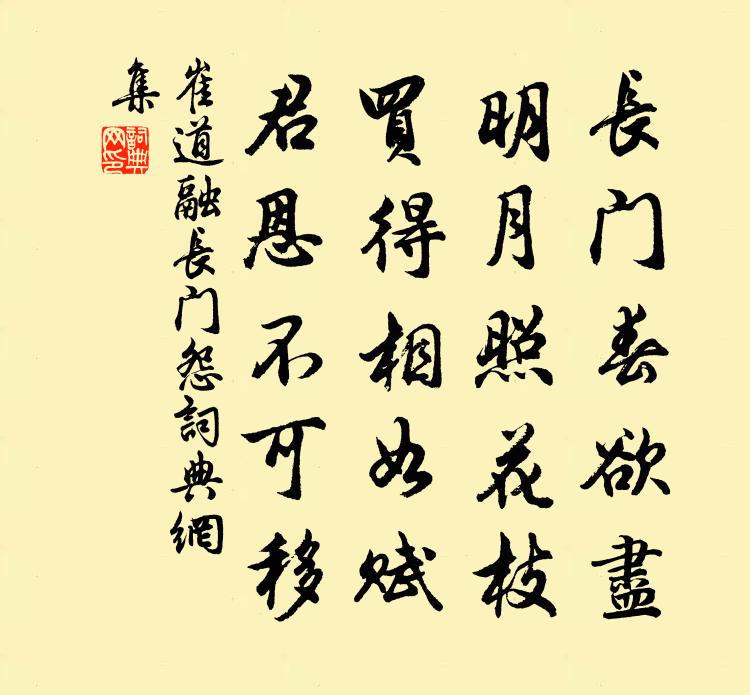 長门春欲盡
明月照花枝
買得相如赋
君恩不可移
崔道融長门怨詞典網
集
詞典
网印